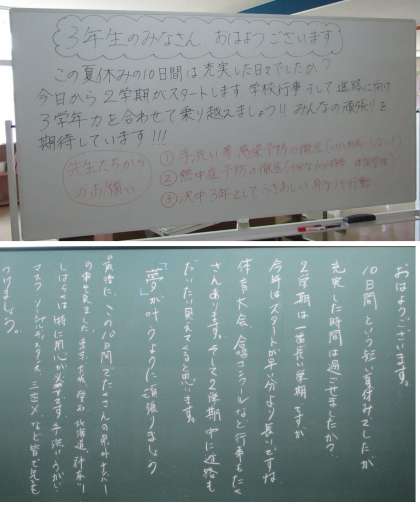 3年生のみなさん おはようございます
この夏休みの10日間は充実した日々でしたか?
今日から2学期がスタートします 学校行事そして進路に向け
3学年力を合わせて乗り越えましょう!! みんなの頑張りを
期待しています!!!
先生たちから
のお願い
① 手洗い等感染予防の徹底
② 熱中症予防の徹底
③ 沢中3年としてふさわしい身なりや行動
おはようございます。
10日間という短い夏休みでしたが
充実した時間は過ごせましたか?
2学期は一番長い学期ですが
今年はスタートが早い分より長いですね
体育大会、合唱コンクールなど行事もたく
さんあります。そして2学期中に進路も
だいたい見えてくると思います。
「夢」が叶うように頑張りましょう
最後に、この10日間でたくさんの県外ナンバー
の車を見ました。
しばらくは特に用心が必要です。手洗い、うがい
マスク、ソーシャルディスタンス、三密など皆で気を
つけましょう。